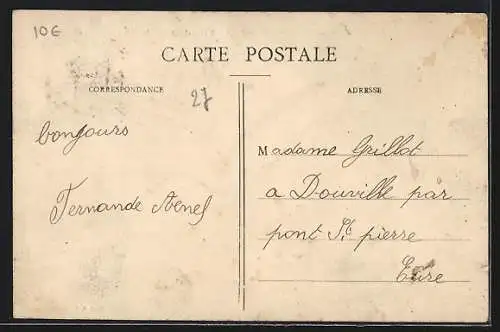 10€
CARTE POSTALE
CORRESPONDANCE
27
bonjours
Fernande
ADRESSE
Madame Grillot
a Douville par
pont St. pierre
Eure